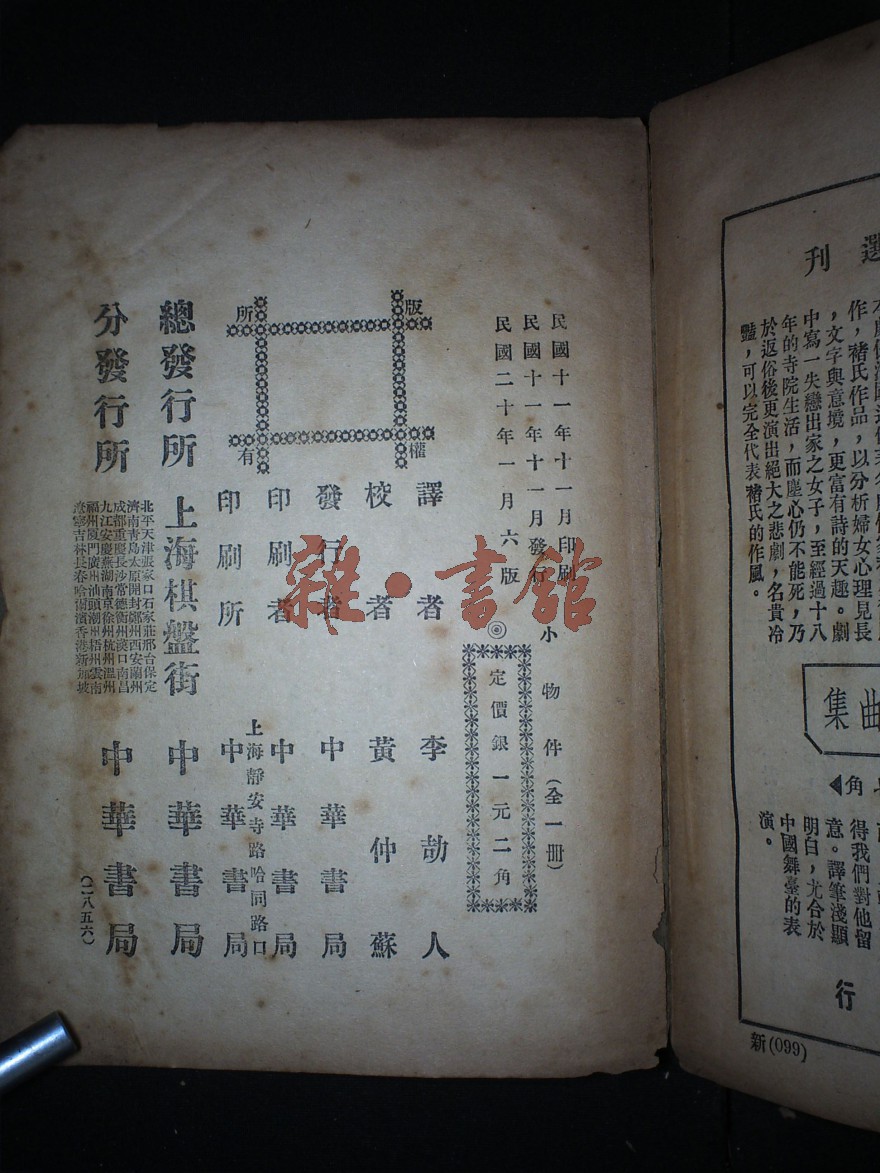 選刊
作，褚氏作品，以分析婦女心理見長
，文字與意境，更富有詩的天趣。劇
中寫一失戀出家之女子，至經過十八
年的寺院生活，而塵心仍不能死，乃
於返俗後更演出絕大之悲劇，名貴冷
豔，可以完全代表褚氏的作風。
曲集
角
得我們對他留
意。譯筆淺顯
明白，尤合於
中國舞臺的表
演。
行
新(099)
民國十一年十一月印刷
民國十一年十一月發行
民國二十年一月六版
小物件（全一冊）
◎定價銀一元二角
版權所有
譯者 李劼人
校者 黃仲蘇
發行者 中華書局
印刷者 中華書局
印刷所 上海靜安寺路哈同路口 中華書局
總發行所 上海棋盤街 中華書局
分發行所 中華書局
北平天津張家口石家莊邢台保定
濟南青島太原開封鄭州西安蘭州
成都重慶長沙常德衡州漢口南昌
九江安慶蕪湖南京徐州杭州溫州
福州廈門廣州汕頭潮州梧州雲南
遼寧吉林長春哈爾濱香港新加坡
（一八五六）
雜·書館